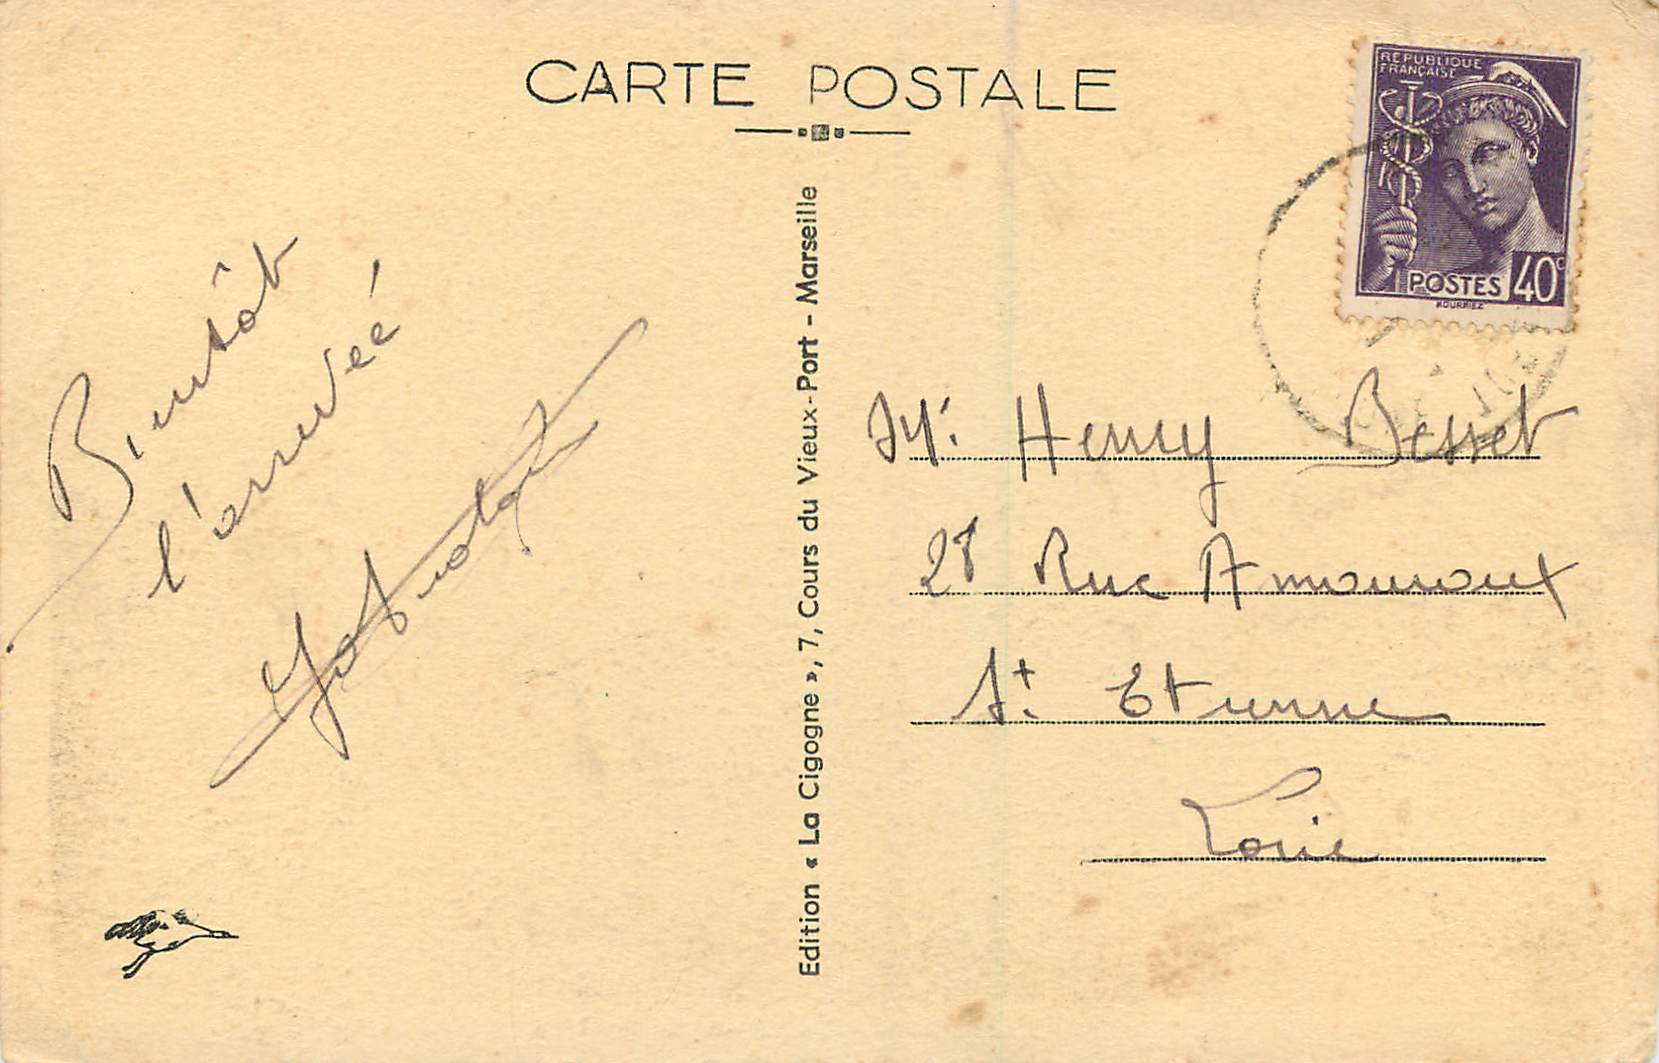 CARTE POSTALE
REPUBLIQUE
FRANÇAISE
POSTES 40c
Bientôt
l'arrivée
Edition « La Cigogne », 7, Cours du Vieux-Port - Marseille
Mr. Henry Besset
28 Rue Amouroux
St. Etienne
Loire